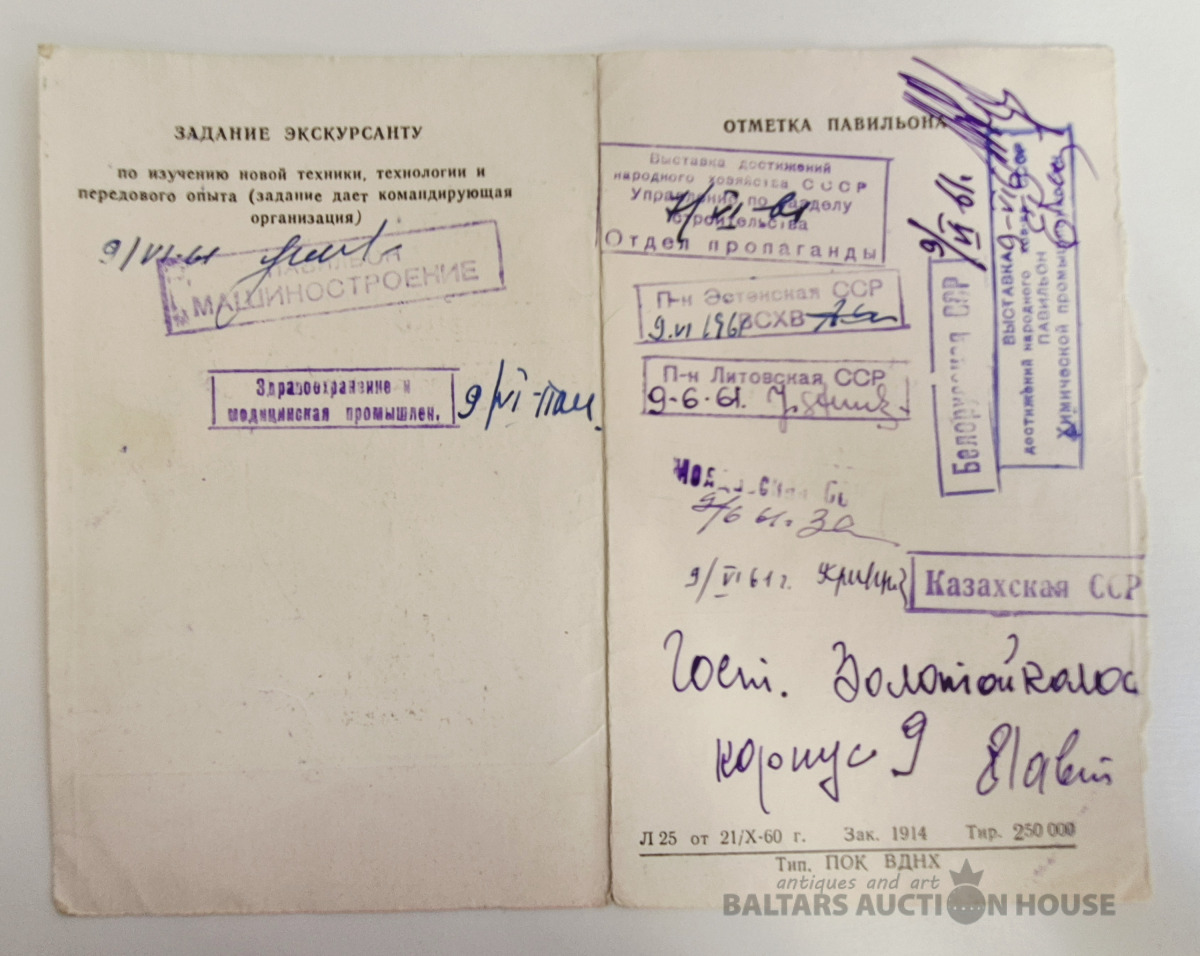 ЗАДАНИЕ ЭКСКУРСАНТУ
по изучению новой техники, технологии и
передового опыта (задание дает командирующая
организация)
9/VI-61
ПАВИЛЬОН
МАШИНОСТРОЕНИЕ
Здравоохранение и
медицинская промышлен.
9/VI
ОТМЕТКА ПАВИЛЬОНА
Выставка достижений
народного хозяйства СССР
Управление по разделу
строительства
Отдел пропаганды
П-н Эстонская ССР
ВСХВ
9.VI 1961
П-н Литовская ССР
9-6-61.
9/6 61г.
9/VI 61 г.
Казахская ССР
Белорусская ССР
9/VI 61.
ВЫСТАВКА
достижений народного
ПАВИЛЬОН
Химической промыш
Гост. Золотой колос
корпус 9
Л 25 от 21/X-60 г. Зак. 1914 Тир. 250 000
Тип. ПОК ВДНХ
antiques and art
BALTARS AUCTION HOUSE